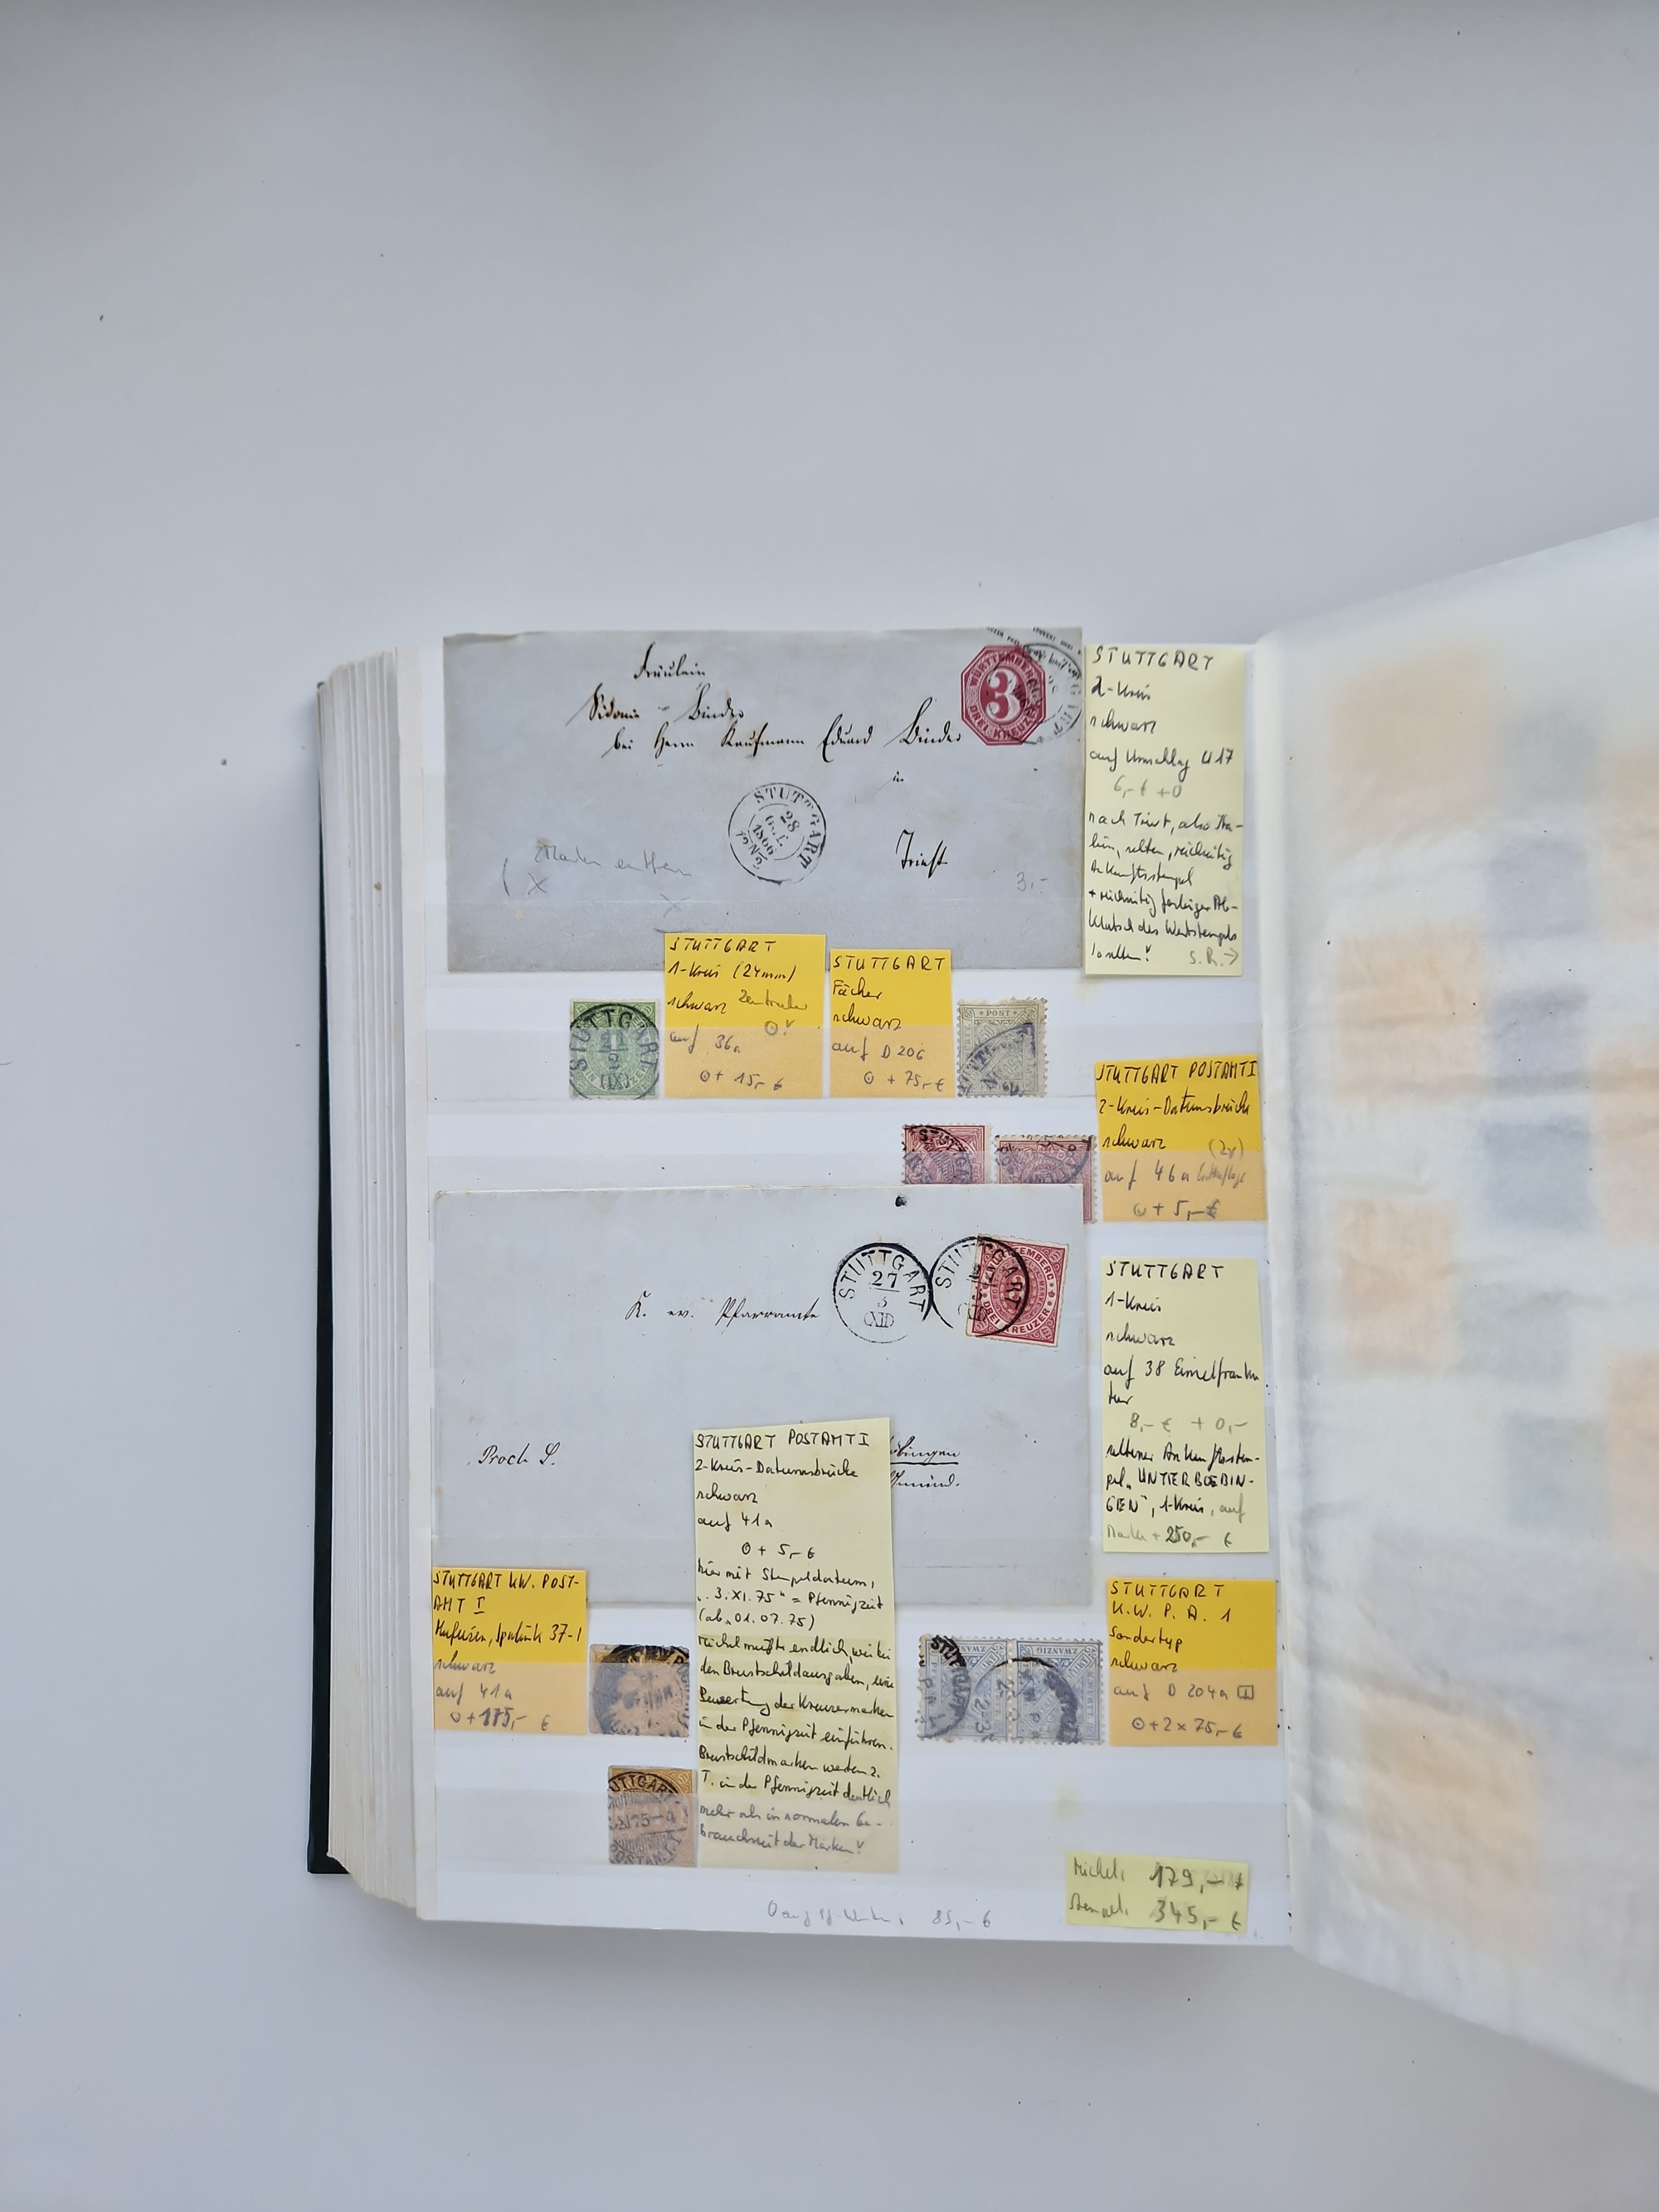 Fräulein
Sidonie Binder
bei Herrn Kaufmann Eduard Binder
in
Triest
WÜRTTEMBERG
3
DREI KREUZER
STUTTGART
28
1866
3,-
STUTTGART
2-Kreis
schwarz
auf Umschlag U17
6,-€ +0
nach Triest, also Ita-
lien, selten, rückseitig
Ankunftsstempel
+ rückseitig farbiger Ab-
klatsch des Wertstempels
selten!
S.R.→
STUTTGART
1-Kreis (24mm)
schwarz
auf 36a
⊙+ 15,- €
STUTTGART
Fächer
schwarz
auf D 206
⊙ + 75,- €
STUTTG
21
2
(IX)
POST
STUTTGART POSTAMT I
2-Kreis-Datumsbrücke
schwarz (2x)
auf 46a
⊙ + 5,- €
STUTTGART
27
3
(XII)
STUTTGART
DREI KREUZER
K. ev. Pfarramte
STUTTGART
1-Kreis
schwarz
auf 38 Einzelfranka
tur
8,- € + 0,-
seltener Ankunftsstem-
pel „UNTERBOEBIN-
GEN“, 1-Kreis, auf
Marke + 250,- €
Proch S.
öbingen
Gmünd.
STUTTGART POSTAMT I
2-Kreis-Datumsbrücke
schwarz
auf 41a
⊙ + 5,- €
hier mit Stempeldatum
„3.XI.75“ = Pfennigzeit
(ab 01.07.75)
Michel müßte endlich, wie bei
den Brustschildausgaben, eine
Bewertung der Kreuzermarken
in der Pfennigzeit einführen.
Brustschildmarken werten z.
T. in der Pfennigzeit deutlich
mehr als in normalen Ge-
brauchszeit der Marken!
STUTTGART K.W. POST-
AMT I
Hufeisen, Spalink 37-1
schwarz
auf 41a
⊙ +175,- €
STUTTGART
K.W. P. A. 1
Sondertyp
schwarz
auf D 204a
⊙+2 x 75,- €
ZWANZIG
UTTGART
XI 75-4
Michel: 179,-
Stempel: 345,- €
85,- €